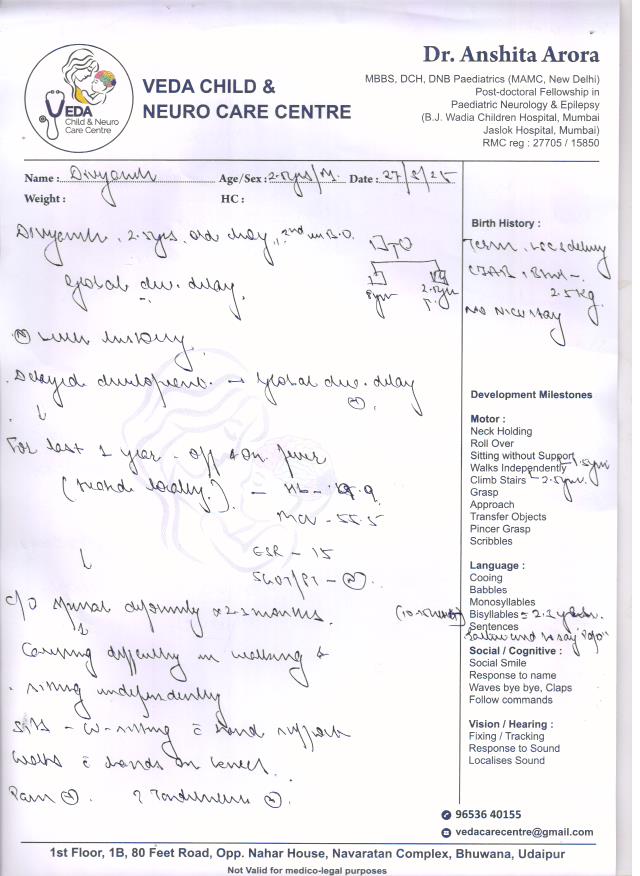 VEDA
Child & Neuro
Care Centre
VEDA CHILD &
NEURO CARE CENTRE
Dr. Anshita Arora
MBBS, DCH, DNB Paediatrics (MAMC, New Delhi)
Post-doctoral Fellowship in
Paediatric Neurology & Epilepsy
(B.J. Wadia Children Hospital, Mumbai
Jaslok Hospital, Mumbai)
RMC reg : 27705 / 15850
Name : Divyansh Age/Sex : 2.5yrs/M. Date : 27/8/25
Weight : HC :
Divyansh, 2.5yrs old boy, 2nd in B.O.
8yrs 2.5yrs
Global dev. delay.
history.
Delayed development → Global dev. delay
↓
For last 1 year - off & on fever
(treated locally) - Hb - 9.9
MCV - 55.5
↓
ESR - 15
SGOT/PT - N
c/o spinal deformity x 2-3 months.
↓
Causing difficulty in walking &
sitting independently
Sits - W-sitting c hand support
Walks c hands on knees.
Pain + ? Tenderness +
Birth History :
Term. LSCS delivery
CIAB, B.wt -
2.5 kg.
No NICU stay
Development Milestones
Motor :
Neck Holding
Roll Over
Sitting without Support
Walks Independently - 1.5yrs
Climb Stairs - 2.5yrs.
Grasp
Approach
Transfer Objects
Pincer Grasp
Scribbles
Language :
Cooing
Babbles
Monosyllables
Bisyllables
Sentences
Social / Cognitive :
Social Smile
Response to name
Waves bye bye, Claps
Follow commands
Vision / Hearing :
Fixing / Tracking
Response to Sound
Localises Sound
96536 40155
vedacarecentre@gmail.com
1st Floor, 1B, 80 Feet Road, Opp. Nahar House, Navaratan Complex, Bhuwana, Udaipur
Not Valid for medico-legal purposes